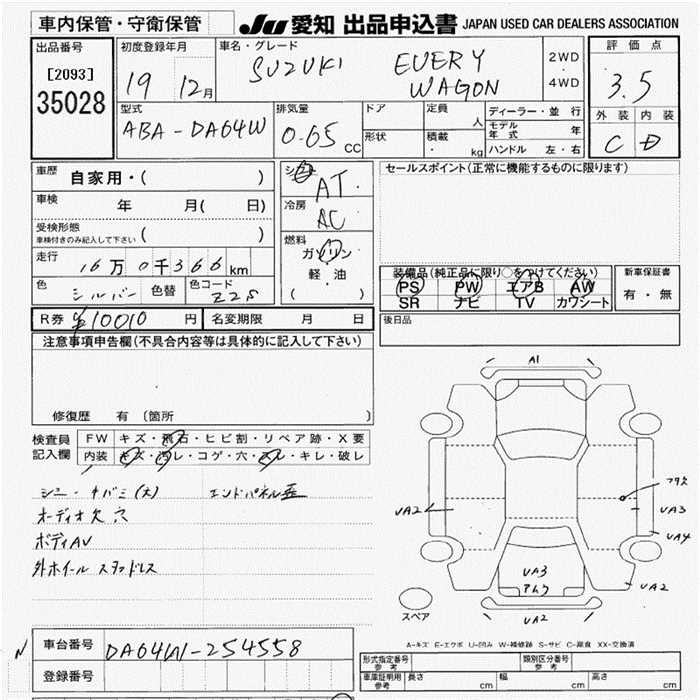 車内保管・守衛保管
JU 愛知 出品申込書 JAPAN USED CAR DEALERS ASSOCIATION
出品番号
[2093]
35028
初度登録年月
19 12月
車名・グレード
SUZUKI EVERY WAGON
2WD
4WD
評価点
3.5
外装 内装
C D
型式
ABA-DA64W
排気量
0.65 CC
ドア
形状
定員 人
積載 kg
ディーラー・並行
モデル年式 年
ハンドル 左・右
車歴 自家用・( )
車検 年 月( 日)
受検形態
車検付きのみ記入して下さい ( )
走行 16万0千366km
色 シルバー 色替 色コード Z2S
AT
冷房
AC
燃料
ガソリン
軽・油
( )
セールスポイント(正常に機能するものに限ります)
装備品(純正品に限り○をつけてください)
PS PW エアB AW
SR ナビ TV カワシート
新車保証書
有・無
R券 ¥10010 円 名変期限 月 日
後日品
注意事項申告欄(不具合内容等は具体的に記入して下さい)
修復歴 有 (箇所 )
検査員記入欄
FW キズ・飛石・ヒビ割・リペア跡・X要
内装 キズ・汚レ・コゲ・穴・スレ・キレ・破レ
エンドパネル歪
オーディオ欠 穴
ボディAV
外ホイール スタッドレス
A1
フタ欠
UA2
UA3
UA4
UA3
UA2
UA2
スペア
A-キズ E-エクボ U-凹み W-補修跡 S-サビ C-腐食 XX-交換済
車台番号 DA64W-254558
登録番号
形式指定番号 参考
類別区分番号 参考
車庫証明用 参考 長さ cm 幅 cm 高さ cm